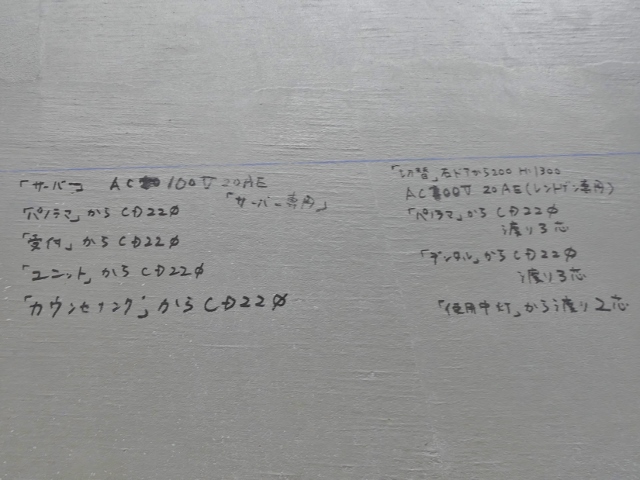 「サーバー」 AC 100V 20AE
「サーバー専用」
「パノラマ」から CD22φ
「受付」から CD22φ
「ユニット」から CD22φ
「カウンセリング」から CD22φ
「切替」右ドアから200 H=1300
AC100V 20AE(レントゲン専用)
「パノラマ」から CD22φ
渡り3芯
「デンタル」から CD22φ
渡り3芯
「使用中灯」から渡り2芯